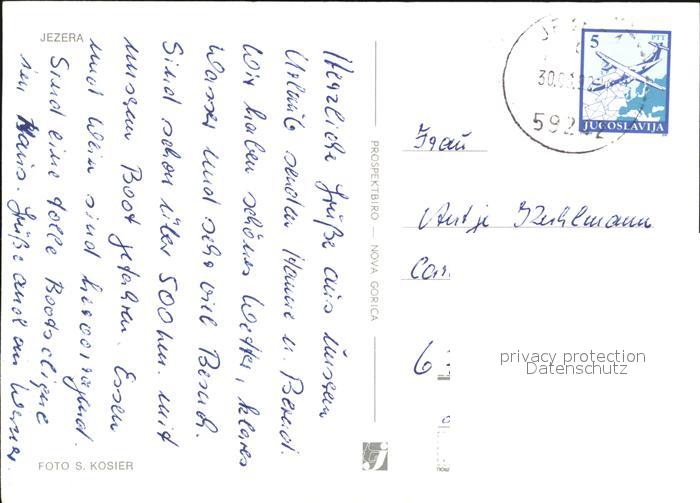 JEZERA
Herzliche Grüße aus unserem
Urlaub senden Hanne u. Bernd.
Wir haben schönes Wetter, klares
Wasser und sehr viel Besuch.
Sind schon über 500 km mit
unserem Boot gefahren. Essen
und Wein sind hervorragend.
Sind eine tolle Bootsclique
Haus. Grüße auch an Werner.
FOTO S. KOSIER
PROSPEKTBIRO — NOVA GORICA
5
PTT
JUGOSLAVIJA
592
Frau
Antje
6
privacy protection
Datenschutz